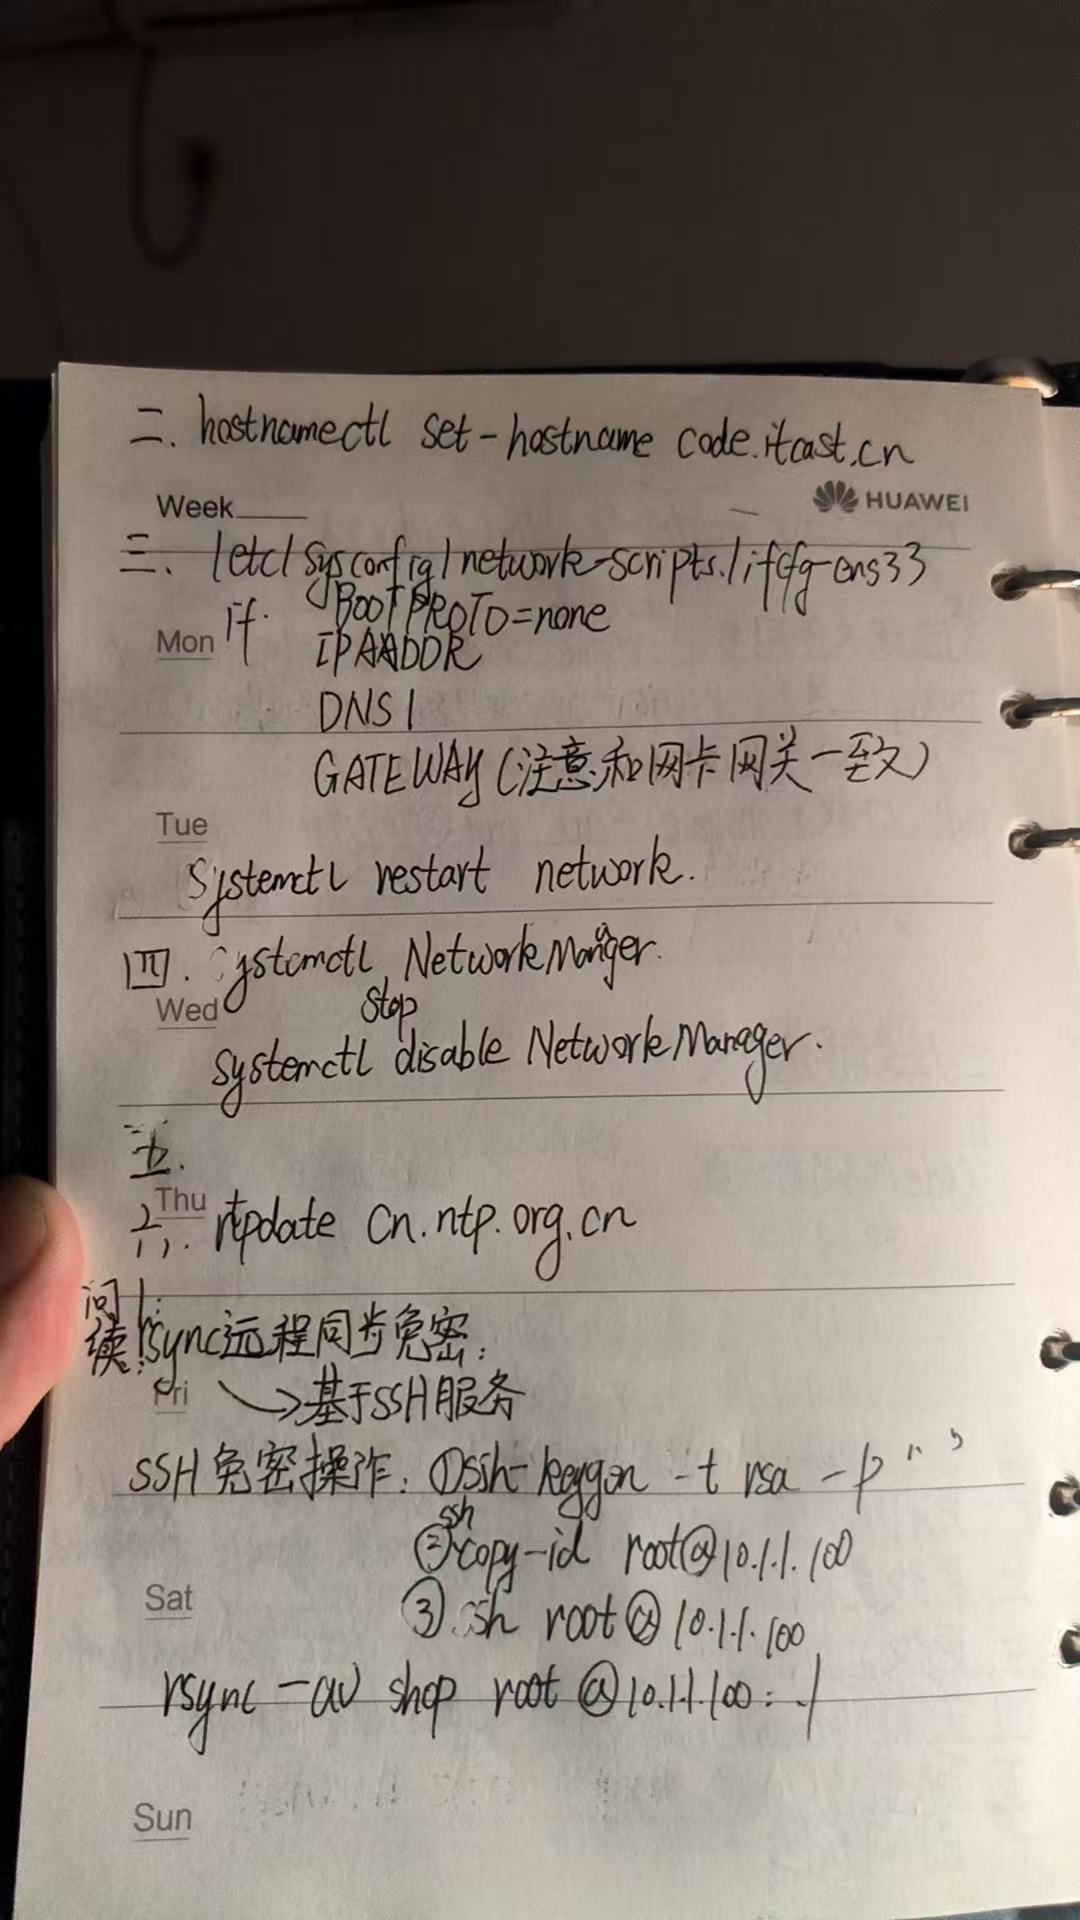 二. hostnamectl set-hostname code.itcast.cn
Week
HUAWEI
三. /etc/sysconfig/network-scripts/ifcfg-ens33
if. BOOTPROTO=none
Mon
IPAADDR
DNS1
GATEWAY (注意和网卡网关一致)
Tue
Systemctl restart network.
四. Systemctl stop NetworkManger.
Wed
systemctl disable NetworkManager.
五.
Thu
六. ntpdate cn.ntp.org.cn
问1:
读: rsync远程同步免密:
Fri
→基于SSH服务
SSH免密操作: ①ssh-keygen -t rsa -P " "
②ssh copy-id root@10.1.1.100
Sat
③ ssh root@10.1.1.100
rsync -av shop root@10.1.1.100: ./
Sun